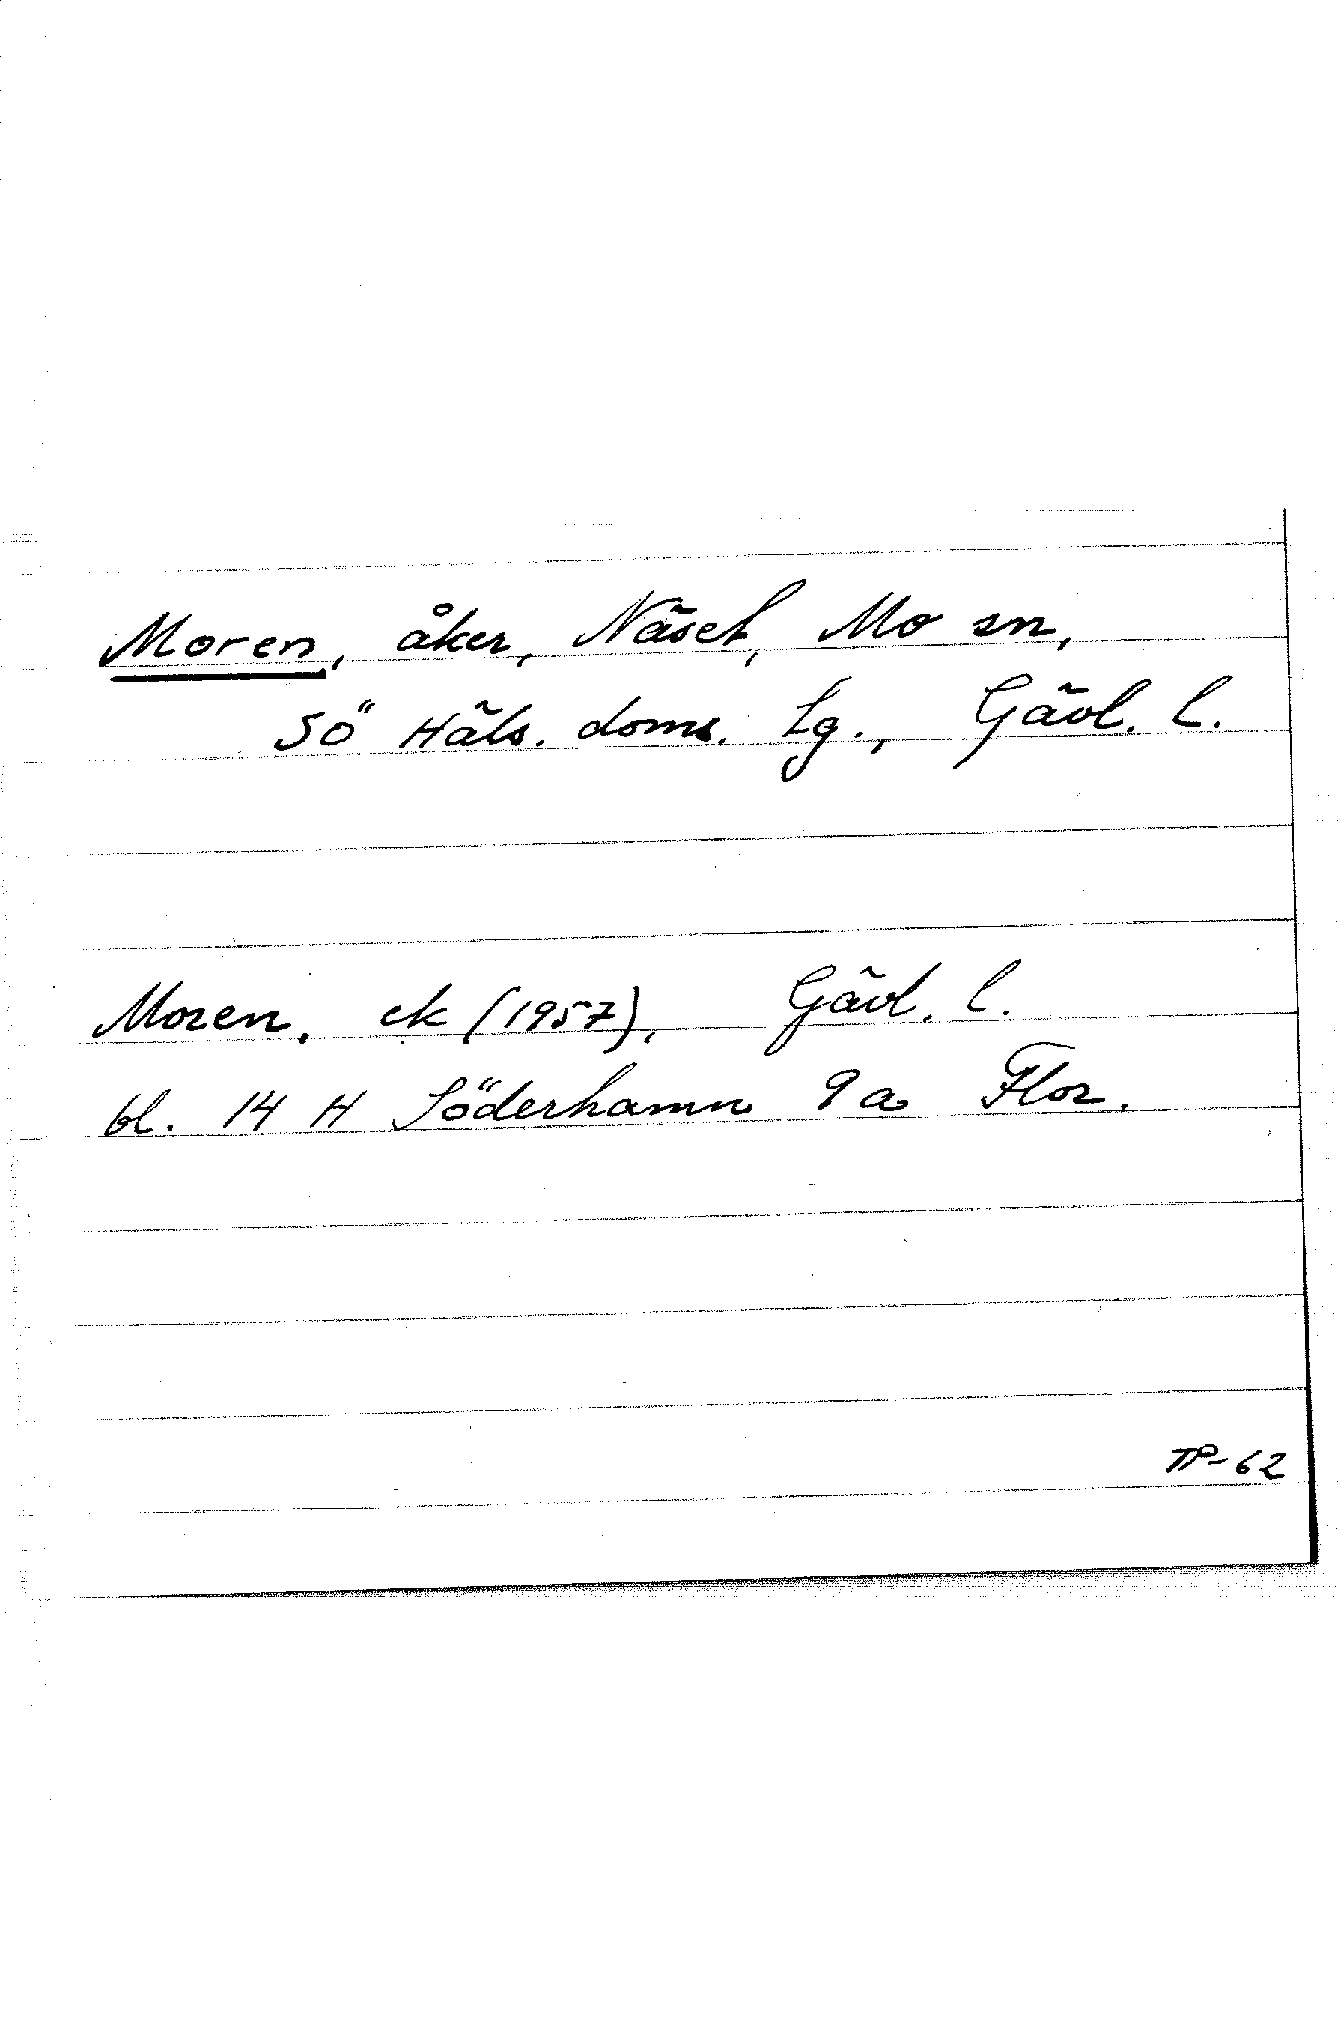 Moren, åker, Näset, Mo sn,
Sö Häls. doms. tg., Gävl. l.
Moren, ek (1957), Gävl. l.
bl. 14 H Söderhamn 9 a Flor.
TP-62